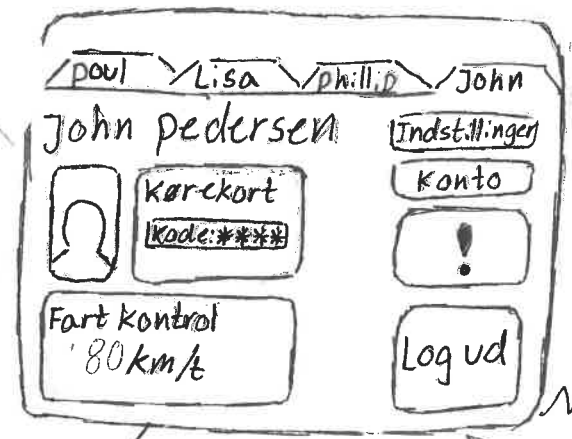 poul Lisa phillip John
John pedersen
Indstillinger
Kørekort
Konto
Kode:****
!
Fart kontrol
80 km/t
Log ud